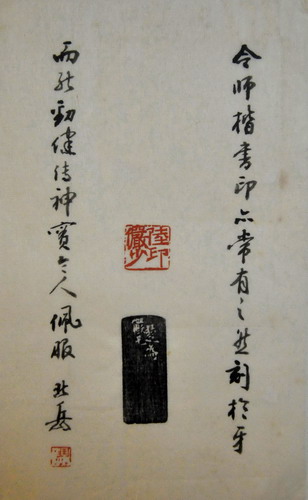 令師楷書印亦常有之然刻於牙
陸印
儼少
而能勁健傳神實令人佩服 北岳